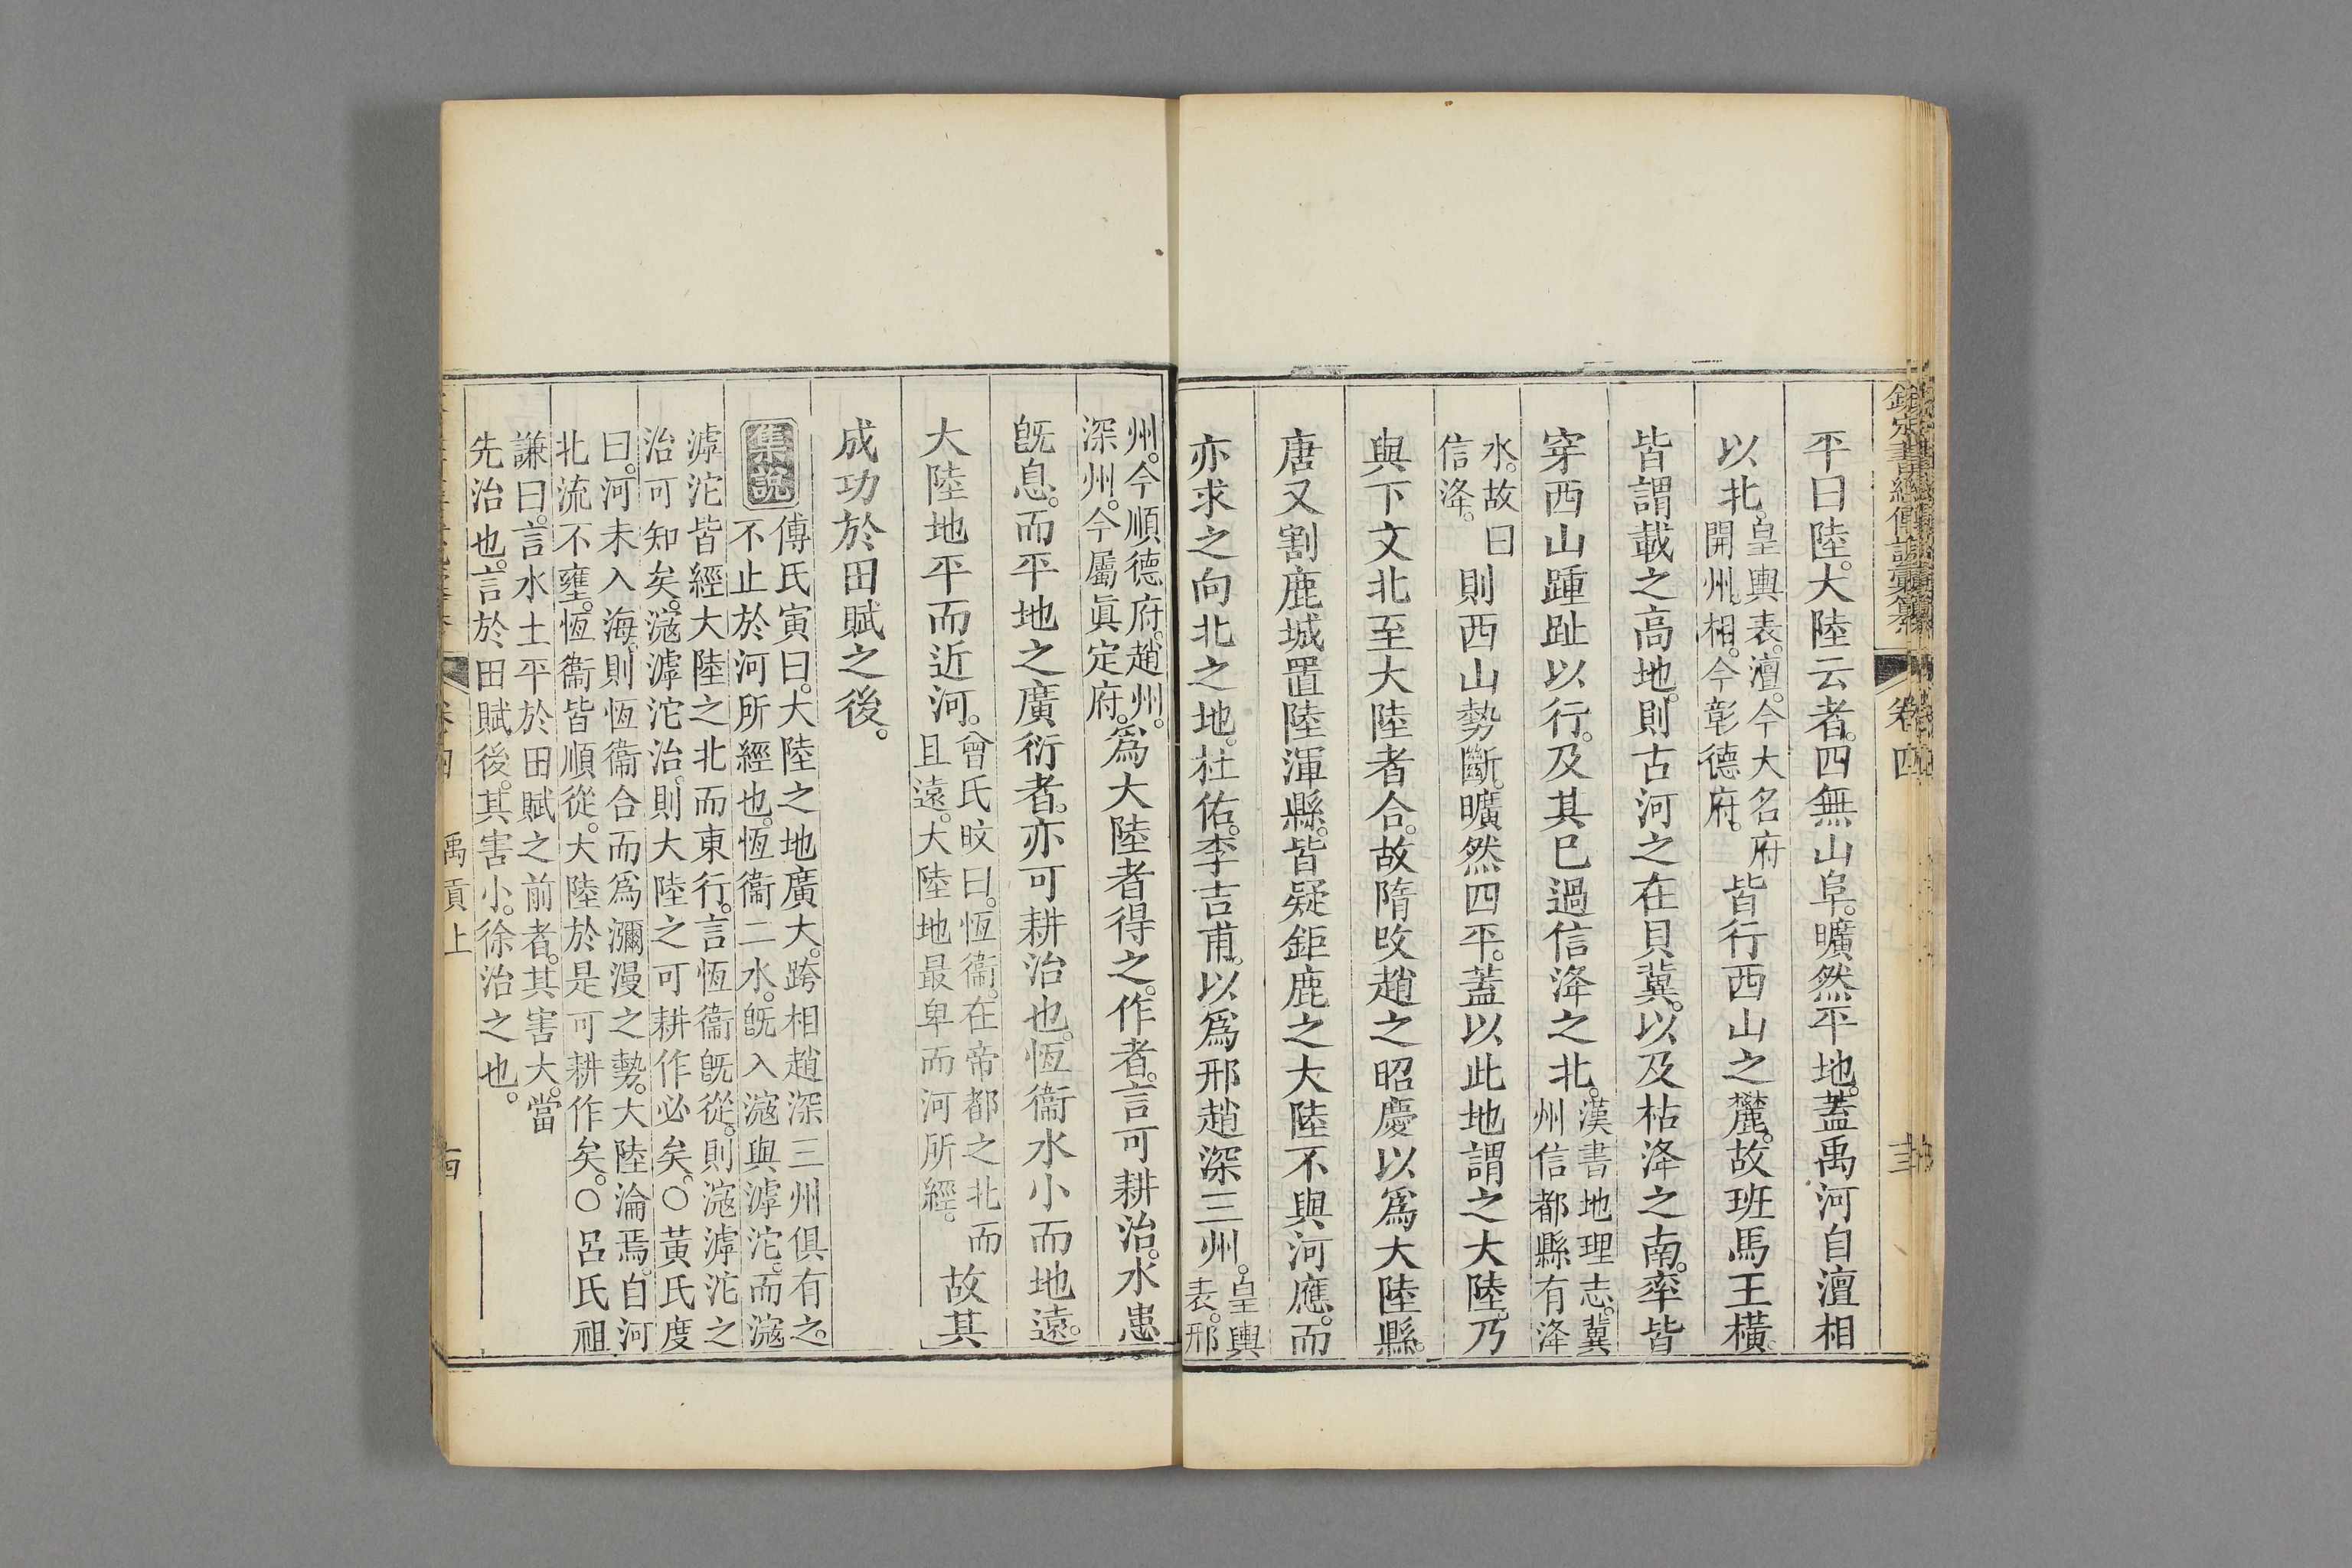 欽定書經傳說彙纂 卷四
平曰陸。大陸云者。四無山阜。曠然平地。蓋禹河自澶相
以北。皇輿表。澶。今大名府開州。相。今彰德府。皆行西山之麓。故班馬王橫。
皆謂載之高地。則古河之在貝冀。以及枯洚之南。率皆
穿西山踵趾以行。及其已過信洚之北。漢書地理志。冀州信都縣有洚
水。故曰信洚。則西山勢斷。曠然四平。蓋以此地謂之大陸。乃
與下文北至大陸者合。故隋改趙之昭慶以爲大陸縣。
唐又割鹿城置陸渾縣。皆疑鉅鹿之大陸不與河應。而
亦求之向北之地。杜佑。李吉甫。以爲邢趙深三州。皇輿表。邢
州。今順德府。趙州。深州。今屬眞定府。爲大陸者得之。作者。言可耕治。水患
旣息。而平地之廣衍者。亦可耕治也。恆衞水小而地遠。
大陸地平而近河。曾氏旼曰。恆衞。在帝都之北而且遠。大陸地最卑而河所經。故其
成功於田賦之後。
集說 傅氏寅曰。大陸之地廣大。跨相趙深三州俱有之。
不止於河所經也。恆衞二水。旣入滱與滹沱。而滱
滹沱皆經大陸之北而東行。言恆衞旣從。則滱滹沱之
治可知矣。滱滹沱治。則大陸之可耕作必矣。○黃氏度
曰。河未入海。則恆衞合而爲瀰漫之勢。大陸淪焉。自河
北流不壅。恆衞皆順從。大陸於是可耕作矣。○呂氏祖
謙曰。言水土平於田賦之前者。其害大。當
先治也。言於田賦後。其害小。徐治之也。
禹貢上